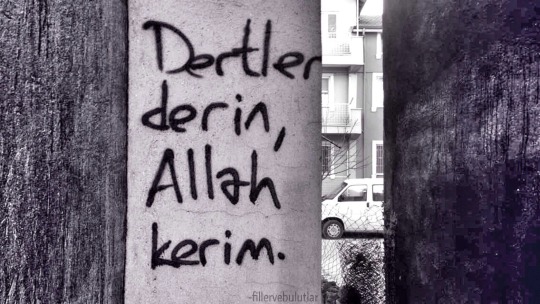 Dertler
derin,
Allah
kerim.
-fillervebulutlar